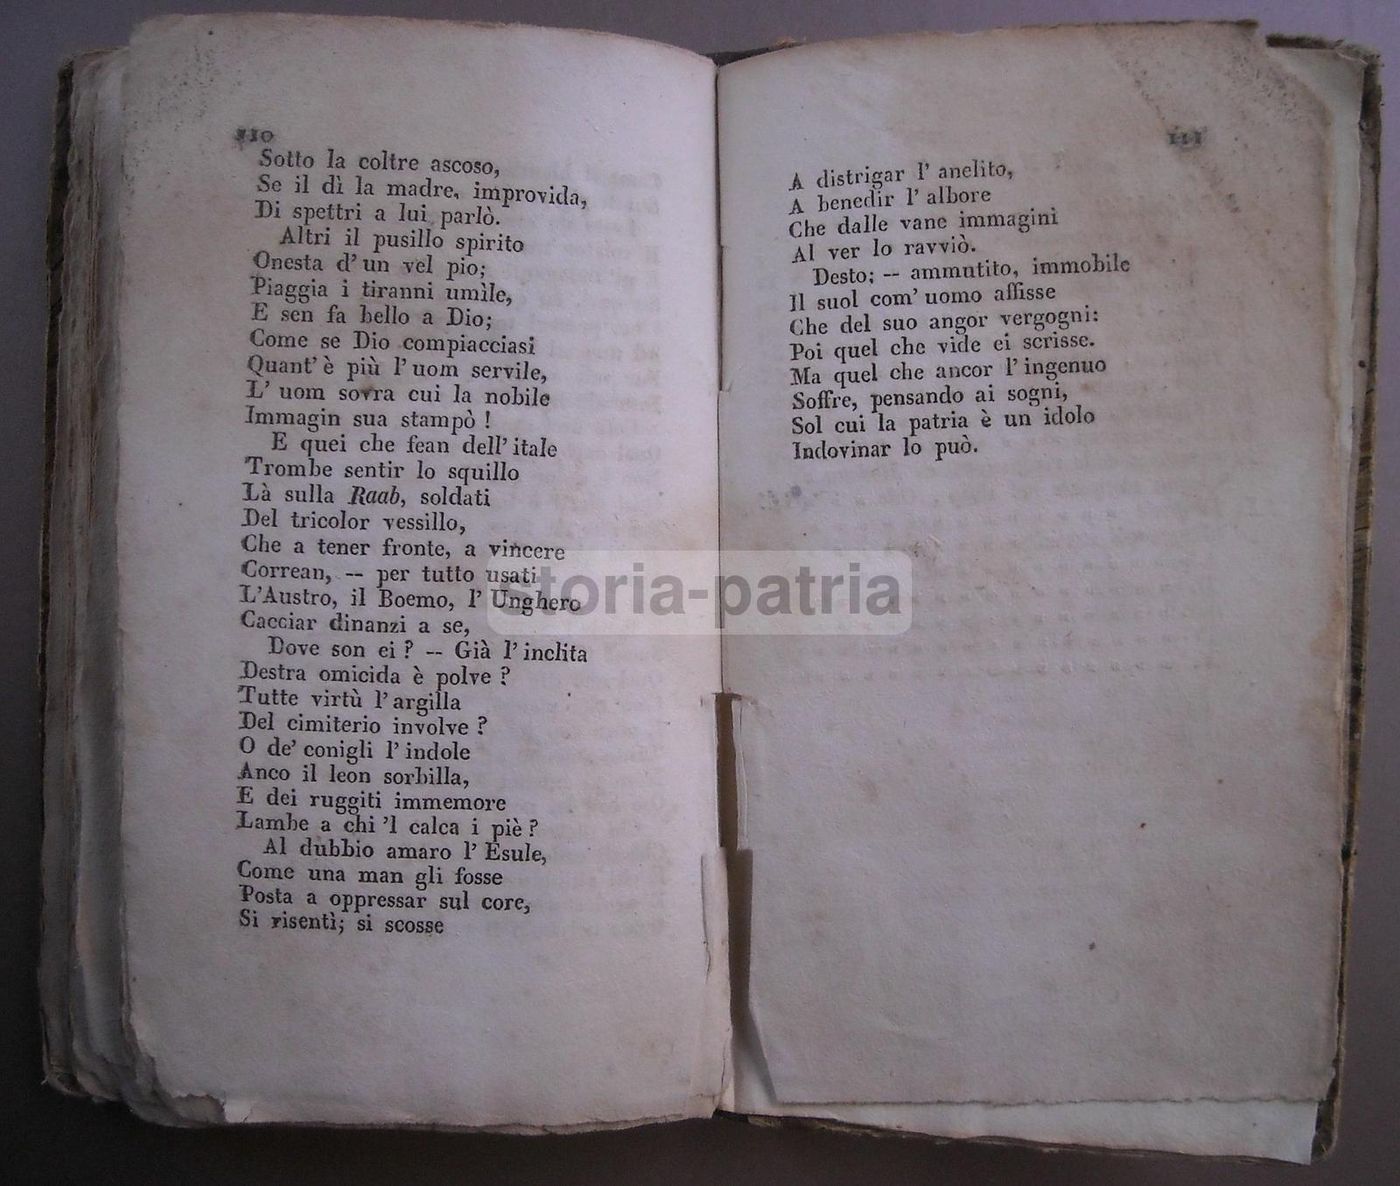 110
Sotto la coltre ascoso,
Se il dì la madre, improvida,
Di spettri a lui parlò.
Altri il pusillo spirito
Onesta d' un vel pio;
Piaggia i tiranni umìle,
E sen fa bello a Dio;
Come se Dio compiacciasi
Quant' è più l' uom servile,
L' uom sovra cui la nobile
Immagin sua stampò !
E quei che fean dell' itale
Trombe sentir lo squillo
Là sulla Raab, soldati
Del tricolor vessillo,
Che a tener fronte, a vincere
Correan, -- per tutto usati
L'Austro, il Boemo, l' Unghero
Cacciar dinanzi a se,
Dove son ei ? -- Già l' inclita
Destra omicida è polve ?
Tutte virtù l' argilla
Del cimiterio involve ?
O de' conigli l' indole
Anco il leon sorbilla,
E dei ruggiti immemore
Lambe a chi 'l calca i piè ?
Al dubbio amaro l' Esule,
Come una man gli fosse
Posta a oppressar sul core,
Si risentì; si scosse
111
A distrigar l' anelito,
A benedir l' albore
Che dalle vane immagini
Al ver lo ravviò.
Desto; -- ammutito, immobile
Il suol com' uomo affisse
Che del suo angor vergogni:
Poi quel che vide ei scrisse.
Ma quel che ancor l' ingenuo
Soffre, pensando ai sogni,
Sol cui la patria è un idolo
Indovinar lo può.
storia-patria